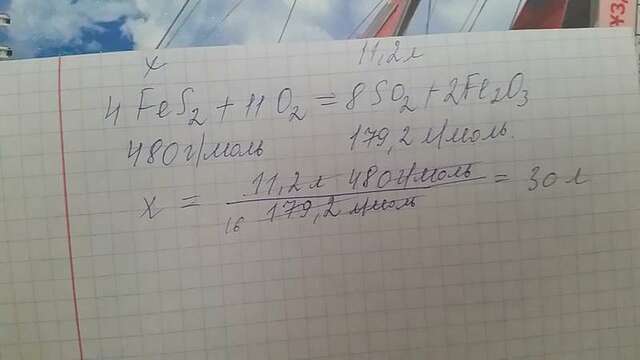 x 11,2 л
4 FeS₂ + 11 O₂ = 8 SO₂ + 2Fe₂O₃
480 г/моль 179,2 л/моль.
x = 11,2 л 480 г/моль / 16 179,2 л/моль = 30 л